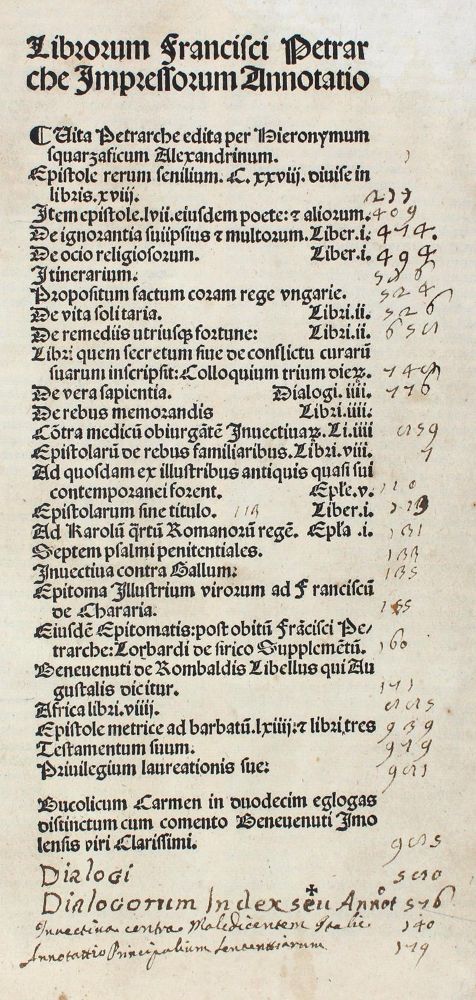 Librorum Francisci Petrar
che Impressorum Annotatio
⁋ Uita Petrarche edita per Hieronymum
squarzaficum Alexandrinum.
Epistole rerum senilium. C.xxviij. diuise in
libris.xviij.
Item epistole.lvij.eiusdem poete: ⁊ aliorum. 409
De ignorantia suiipsius ⁊ multorum. Liber.i: 474.
De ocio religiosorum. Liber.i: 494
Itinerarium. 506
Propositum factum coram rege vngarie. 524
De vita solitaria. Libri.ii. 526
De remediis vtriusqꝫ fortune: Libri.ii.
Libri quem secretum siue de conflictu curarũ
suarum inscripsit: Colloquium trium dieꝝ.
De vera sapientia. Dialogi.iiij. 776
De rebus memorandis Libri.iiij:
Cõtra medicũ obiurgãtẽ Inuectiuaꝝ. Li.iiij
Epistolarũ de rebus familiaribus. Libri.viij. 1
Ad quosdam ex illustribus antiquis quasi sui
contemporanei forent. Epľe.v. 110
Epistolarum sine titulo. 113 Liber.i.
Ad Karolũ q̃rtũ Romanorũ regẽ. Epľa .i. 131
Septem psalmi penitentiales. 133
Inuectiua contra Gallum: 135
Epitoma Illustrium virorum ad Franciscũ
de Chararia. 155
Eiusdẽ Epitomatis: post obitũ Frãcisci Pe/
trarche: Lorbardi de sirico Supplemẽtũ. 160
Beneuenuti de Rombaldis Libellus qui Au
gustalis dicitur. 171
Africa libri.viiij.
Epistole metrice ad barbatũ.lxiiij: ⁊ libri tres 939
Testamentum suum. 979
Priuilegium laureationis sue:
Bucolicum Carmen in duodecim eglogas
distinctum cum comento Beneuenuti Imo
lensis viri Clarissimi.
Dialogi
Dialogorum Index seu Annot 576
Inuectiua contra Maledicentem Italie 140
Annottatio Principalium Sententiarum 179